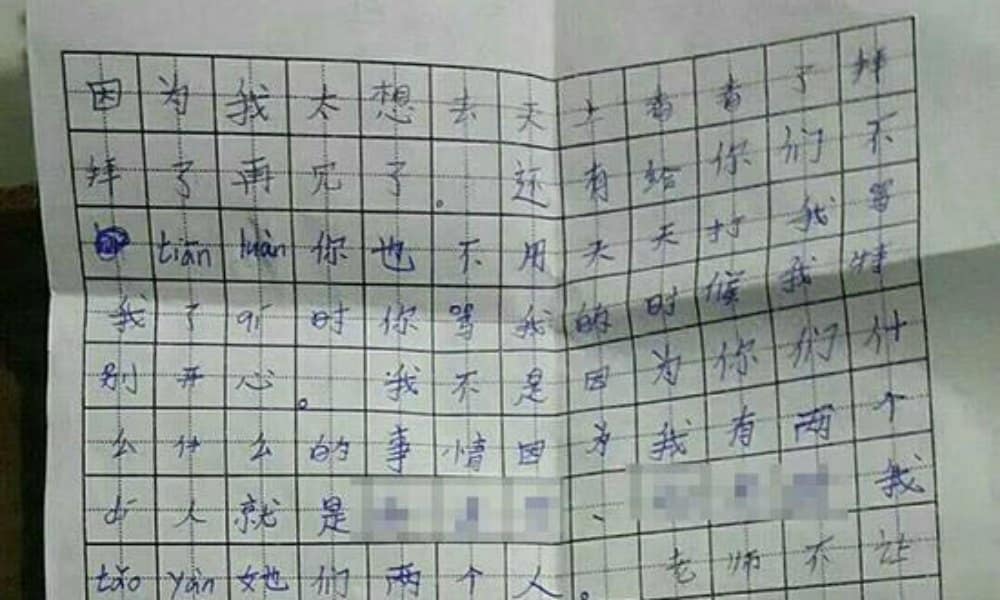 因为我太想去天上看看了拜
拜了再见了。还有给你们不
tiān luàn你也不用天天打我骂
我了qí时你骂我的时候我特
别开心。我不是因为你们什
么什么的事情因为我有两个
dí人就是、我
tǎo yàn她们两个人。老师不让